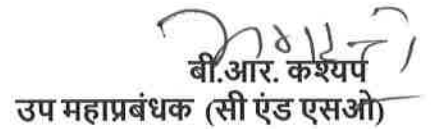 बी.आर. कश्यप
उप महाप्रबंधक (सी एंड एसओ)